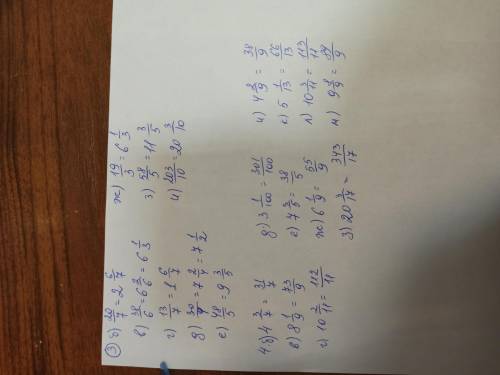 ③ б) 20/7 = 2 6/7
в) 38/6 = 6 2/6 = 6 1/3
г) 13/7 = 1 6/7
д) 30/4 = 7 2/4 = 7 1/2
е) 48/5 = 9 3/5
ж) 19/3 = 6 1/3
з) 58/5 = 11 3/5
и) 203/10 = 20 3/10
4. б) 4 3/7 = 31/7
в) 8 1/9 = 73/9
г) 10 2/11 = 112/11
д) 3 1/100 = 301/100
е) 7 3/5 = 38/5
ж) 6 1/9 = 55/9
з) 20 3/17 = 343/17
и) 4 2/9 = 38/9
к) 5 1/13 = 66/13
л) 10 3/11 = 113/11
м) 9 8/9 = 89/9